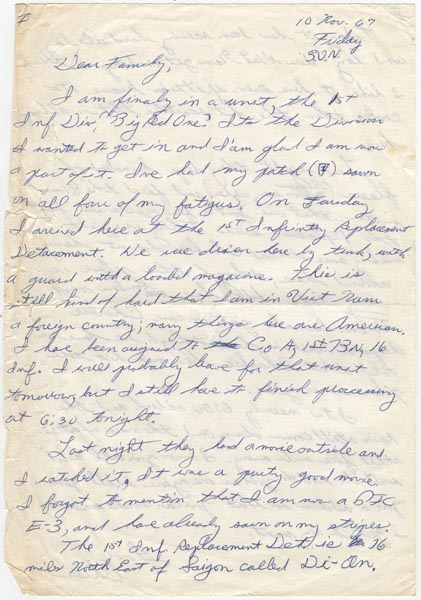 I
10 Nov. 67
Friday
S.V.N.
Dear Family,
I am finally in a unit, the 1st
Inf Div, "Big Red One". It's the Division
I wanted to get in and I'am glad I am now
a part of it. I've had my patch (1) sawn
on all four of my fatigus. On
I arrived here at the 1st Infintry Replacement
Detacement. We were driven here by truck, with
a guard with a loaded magazine. This is
still kind of hard that I am in Viet Nam
a foreign country; many things here are American.
I have been assigned to Co A, 1st BN, 16
Inf. I will probably leave for that unit
tomorrow, but I still have to finish proccesing
at 6:30 tonight.
Last night they had a movie outside and
I watched it, It was a prety good movie.
I forgot to mention that I am now a PFC
E-3, and have already sawn on my stripes.
The 1st Inf. Replacement Det. is 16
miles North East of Saigon called Di-On.